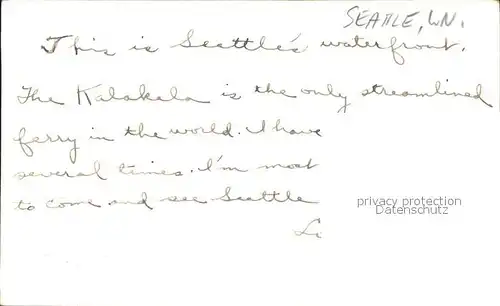 SEATTLE, WN.
This is Seattle's waterfront.
The Kalakala is the only streamlined
ferry in the world. I have
several times. I'm most
to come and see Seattle
privacy protection
Datenschutz